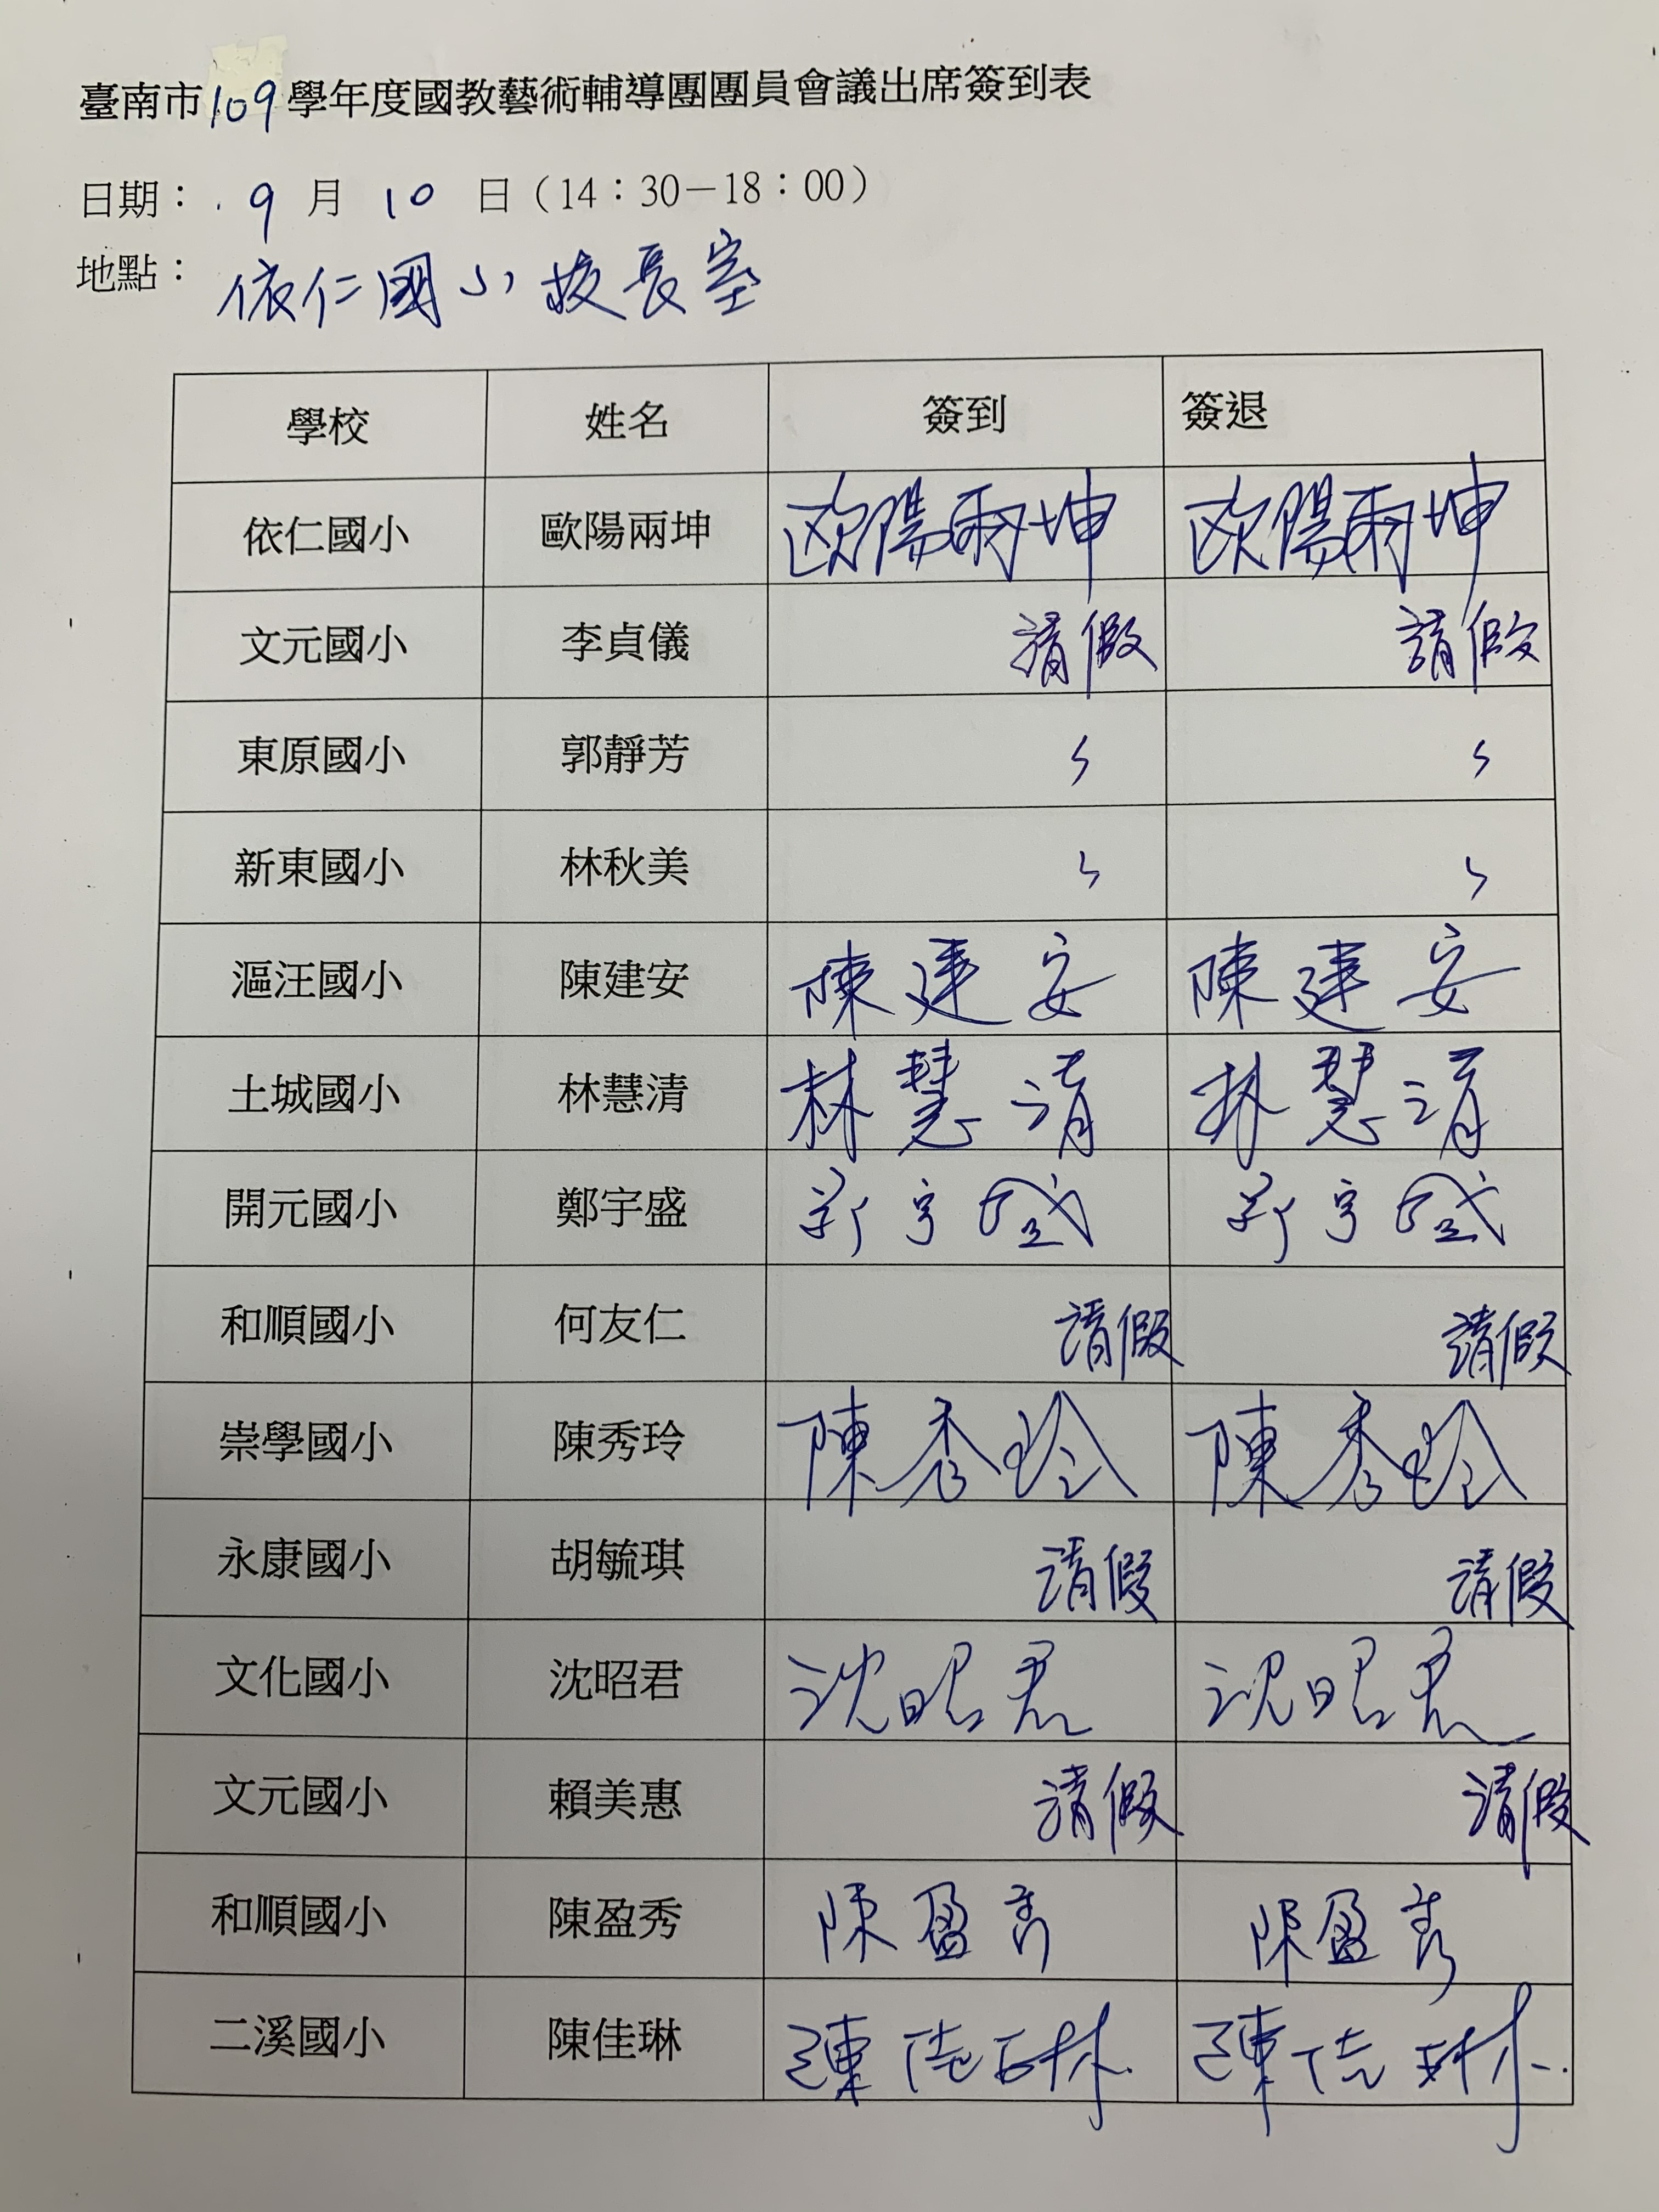 臺南市109學年度國教藝術輔導團團員會議出席簽到表
日期：9 月 10 日（14：30－18：00）
地點：依仁國小校長室
學校 姓名 簽到 簽退
依仁國小 歐陽兩坤 欧陽兩坤 欧陽兩坤
文元國小 李貞儀 請假 請假
東原國小 郭靜芳
新東國小 林秋美
漚汪國小 陳建安 陳建安 陳建安
土城國小 林慧清 林慧清 林慧清
開元國小 鄭宇盛 鄭宇盛 鄭宇盛
和順國小 何友仁 請假 請假
崇學國小 陳秀玲 陳秀玲 陳秀玲
永康國小 胡毓琪 請假 請假
文化國小 沈昭君 沈昭君 沈昭君
文元國小 賴美惠 請假 請假
和順國小 陳盈秀 陳盈秀 陳盈秀
二溪國小 陳佳琳 陳佳琳 陳佳琳